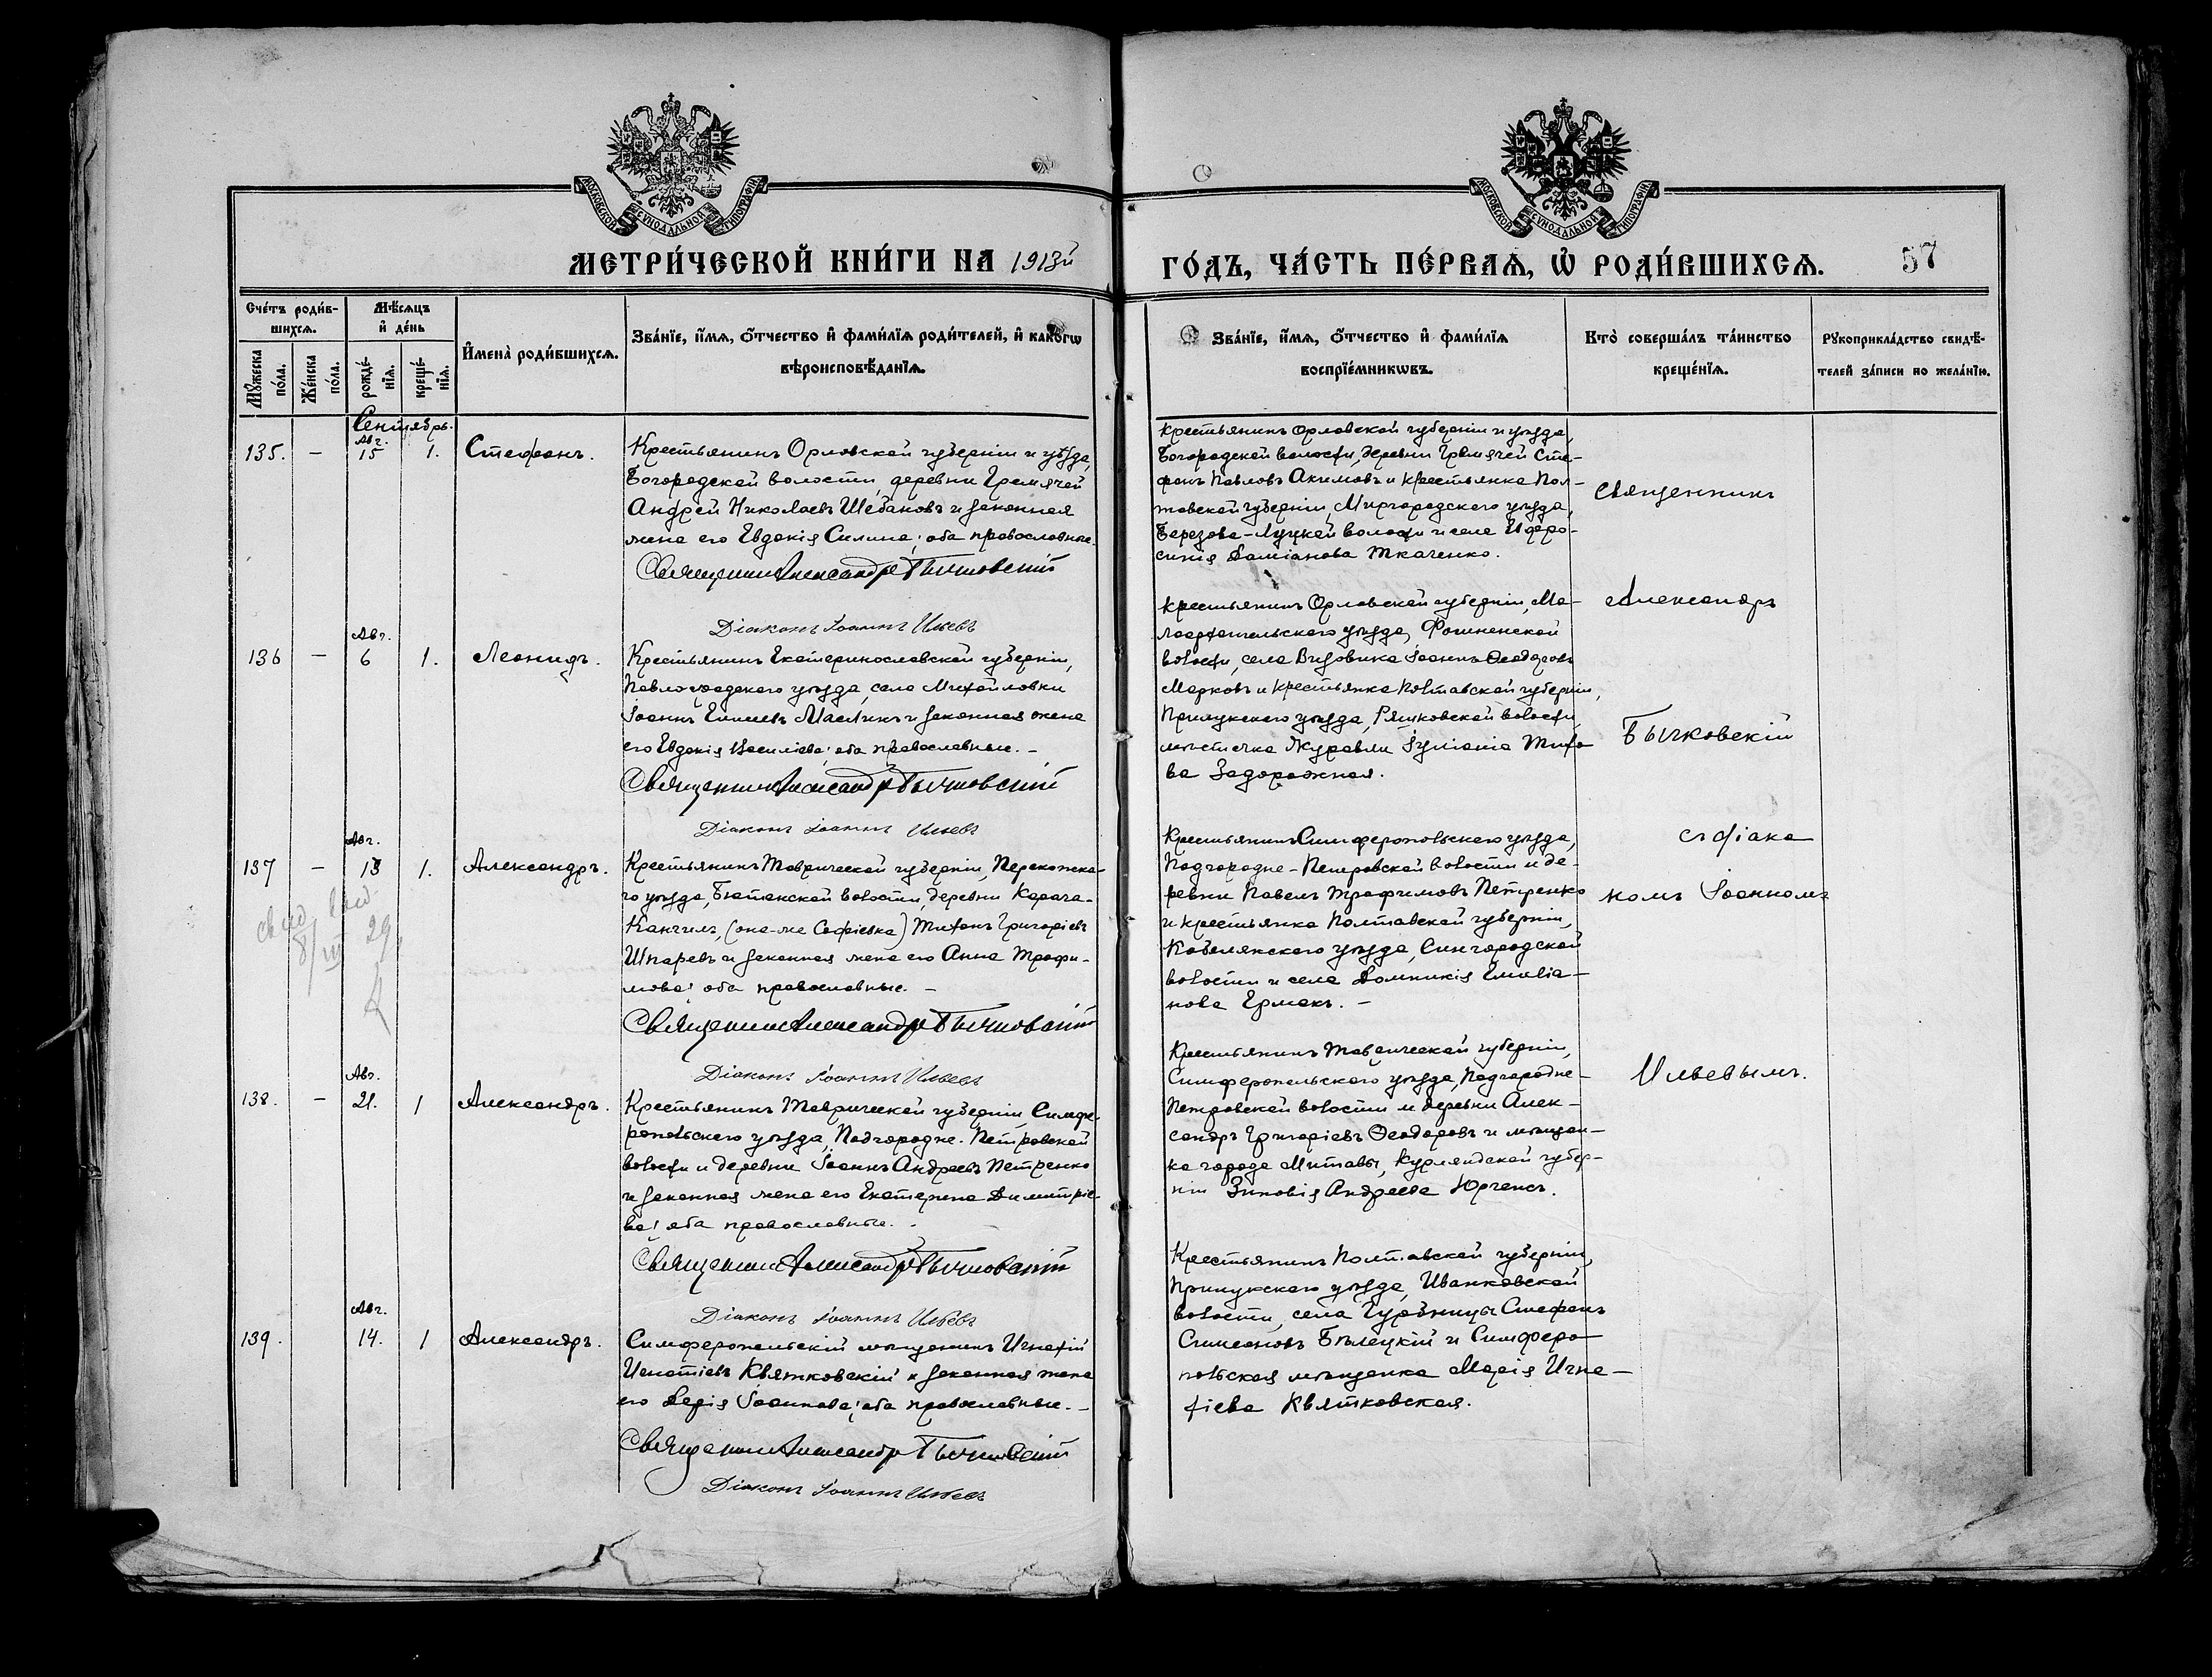 МОСКОВСКОЙ СѴНОДАЛЬНОЙ ТИПОГРАФІИ
МОСКОВСКОЙ СѴНОДАЛЬНОЙ ТИПОГРАФІИ
МЕТРИ́ЧЕСКОЙ КНИ́ГИ НА 1913й
ГО́ДЪ, ЧА́СТЬ ПЕ́РВАѦ, Ѡ҆ РОДИ́ВШИХСѦ. 57
Сче́тъ роди́в-
шихсѧ.
Мꙋ́жеска по́ла.
Же́нска по́ла.
Мѣ́сѧцъ
и҆ де́нь
рожде́-нїѧ.
креще́-нїѧ.
И҆мена̀ роди́вшихсѧ.
Зва́нїе, и҆́мѧ, ѻ҆́тчество и҆ фами́лїѧ роди́телей, и҆ како́гѡ
вѣроисповѣ́данїѧ.
Зва́нїе, и҆́мѧ, ѻ҆́тчество и҆ фами́лїѧ
воспрїе́мникѡвъ.
Кто̀ соверша́лъ та́инство
креще́нїѧ.
Рꙋкоприкла́дство свидѣ́-
телей за́писи по жела́нїю.
Сентябрь.
135. — Авг. 15 1. Стефанъ.
Крестьянинъ Орловской губерніи и уѣзда,
Богородской волости, деревни Гремячей
Андрей Николаевъ Шебановъ и законная
жена его Евдокія Силина; оба православные.
Священникъ Александръ Бычковскій
Діаконъ Іоаннъ Ильевъ
Крестьянинъ Орловской губерніи и уѣзда,
Богородской волости, деревни Гремячей Сте-
фанъ Павловъ Акимовъ и крестьянка Пол-
тавской губерніи, Миргородскаго уѣзда,
Березово-Луцкой волости и села Ифро-
синія Даміанова Ткаченко.
136 — Авг. 6 1. Леонидъ.
Крестьянинъ Екатеринославской губерніи,
Павлоградскаго уѣзда, села Михайловки
Іоаннъ Маслик и законная жена
его Евдокія Василіева; оба православные. —
Священникъ Александръ Бычковскій
Діаконъ Іоаннъ Ильевъ
Крестьянинъ Орловской губерніи, Ма-
лоархангельскаго уѣзда,
волости, села Іоаннъ Ѳеодоровъ
Марковъ и крестьянка Полтавской губерніи,
Прилукскаго уѣзда, Ряшковской волости,
мѣстечка Журавли Іуліанія Тихо
ва Задорожная.
137 — Авг. 13 1. Александръ.
Крестьянинъ Таврической губерніи, Перекопска-
го уѣзда, волости, деревни Карача-
Кангилъ, (она-же Софіевка) Тихонъ Григоріевъ
Шпаревъ и законная жена его Анна Трофи-
мова; оба православные. —
Священникъ Александръ Бычковскій
Діаконъ Іоаннъ Ильевъ
Крестьянинъ Симферопольскаго уѣзда,
Подгородне-Петровской волости и де-
ревни Павелъ Трофимовъ Петренко
и крестьянка Полтавской губерніи,
Кобелякскаго уѣзда,
волости и села Домникія Емиліа-
нова Ермакъ. —
138. — Авг. 21. 1 Александръ.
Крестьянинъ Таврической губерніи, Симфе-
ропольскаго уѣзда, Подгородне-Петровской
волости и деревни Іоаннъ Андреевъ Петренко
и законная жена его Екатерина Димитріе-
ва; оба православные. —
Священникъ Александръ Бычковскій
Діаконъ Іоаннъ Ильевъ
Крестьянинъ Таврической губерніи,
Симферопольскаго уѣзда, Подгородне-
Петровской волости и деревни Алек-
сандръ Григоріевъ Ѳеодоровъ и мѣщан-
ка города Митавы, Курляндской губер-
ніи Зиновія Андреева Юргенсъ.
139. Авг. 14. 1 Александръ.
Симферопольскій мѣщанинъ Игнатій
Игнатіевъ Квятковскій и законная жена
его Дарія Іоаннова; оба православные. —
Священникъ Александръ Бычковскій
Діаконъ Іоаннъ Ильевъ
Крестьянинъ Полтавской губерніи,
Прилукскаго уѣзда, Иванковской
волости, села Стефанъ
Симеоновъ Бѣлецкій и Симферо
польская мѣщанка Марія Игна-
тіева Квятковская.
Священникъ
Александръ
Бычковскій
съ діако
номъ Іоанномъ
Ильевымъ.